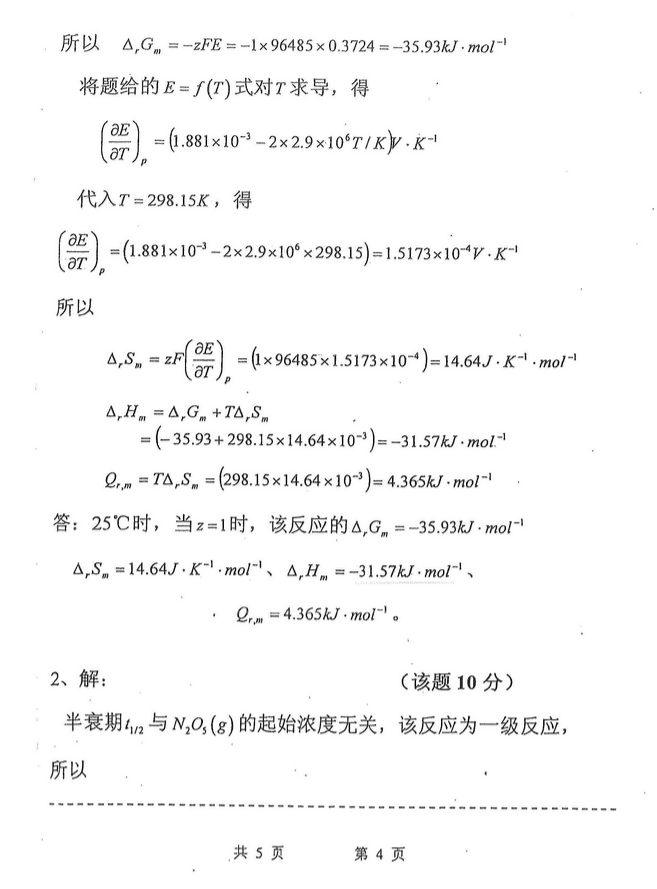 所以 Δ_rG_m = -zFE = -1×96485×0.3724 = -35.93kJ·mol⁻¹
将题给的 E = f(T) 式对 T 求导，得
(∂E/∂T)_p = (1.881×10⁻³ - 2×2.9×10⁶T/K)V·K⁻¹
代入 T = 298.15K，得
(∂E/∂T)_p = (1.881×10⁻³ - 2×2.9×10⁶×298.15) = 1.5173×10⁻⁴V·K⁻¹
所以
Δ_rS_m = zF(∂E/∂T)_p = (1×96485×1.5173×10⁻⁴) = 14.64J·K⁻¹·mol⁻¹
Δ_rH_m = Δ_rG_m + TΔ_rS_m
= (-35.93 + 298.15×14.64×10⁻³) = -31.57kJ·mol⁻¹
Q_r,m = TΔ_rS_m = (298.15×14.64×10⁻³) = 4.365kJ·mol⁻¹
答：25℃时，当 z=1 时，该反应的 Δ_rG_m = -35.93kJ·mol⁻¹
Δ_rS_m = 14.64J·K⁻¹·mol⁻¹、Δ_rH_m = -31.57kJ·mol⁻¹、
Q_r,m = 4.365kJ·mol⁻¹。
2、解： （该题 10 分）
半衰期 t_1/2 与 N₂O₅(g) 的起始浓度无关，该反应为一级反应，
所以
共 5 页 第 4 页